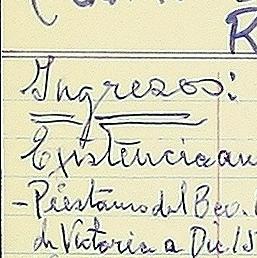 R
Ingresos:
Existencia an
- Préstamo del Bco.
de Victoria a Dic/5